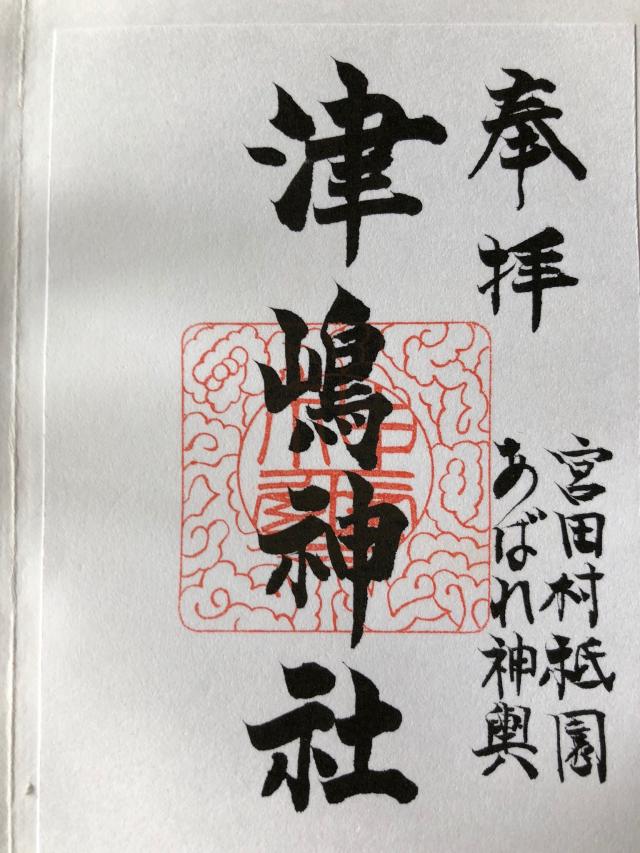 奉拝
宮田村祗園
あばれ神輿
津嶋神社